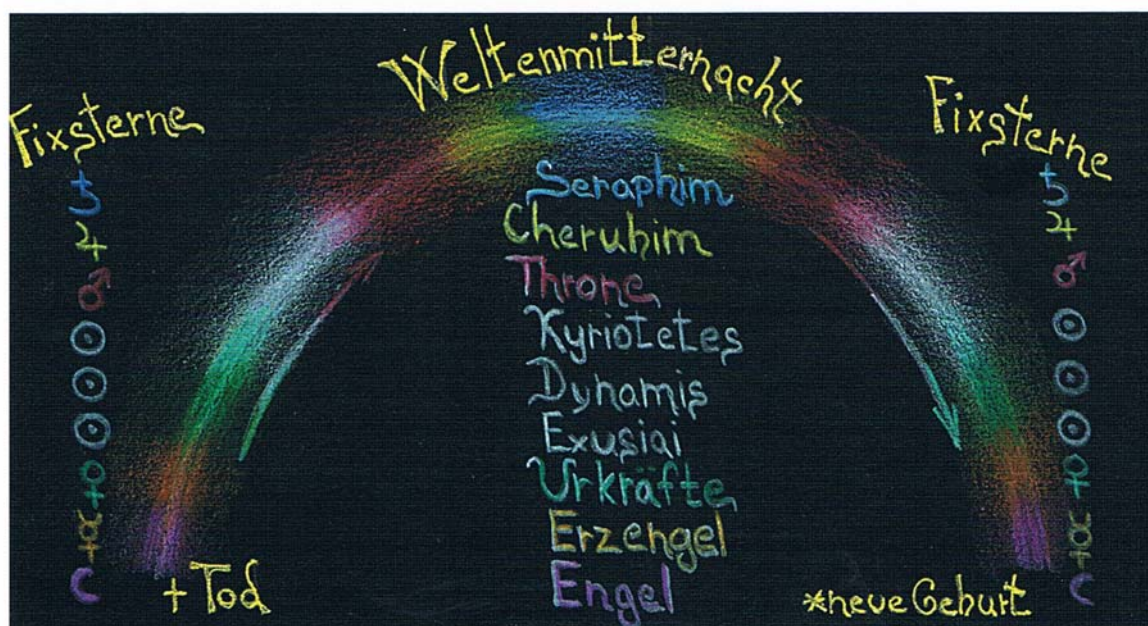 Weltenmitternacht
Fixsterne
♄
♃
♂
☉
☉
☉
♀
☿
☾
+ Tod
Seraphim
Cherubim
Throne
Kyriotetes
Dynamis
Exusiai
Urkräfte
Erzengel
Engel
Fixsterne
♄
♃
♂
☉
☉
☉
♀
☿
☾
*neue Geburt